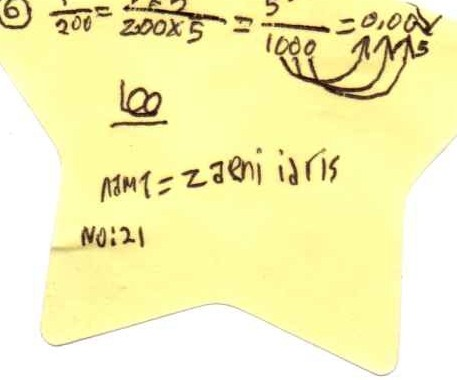 ⑥ 1/200 = 1×5/200×5 = 5/1000 = 0.005
100
name = zaeni idris
NO:21